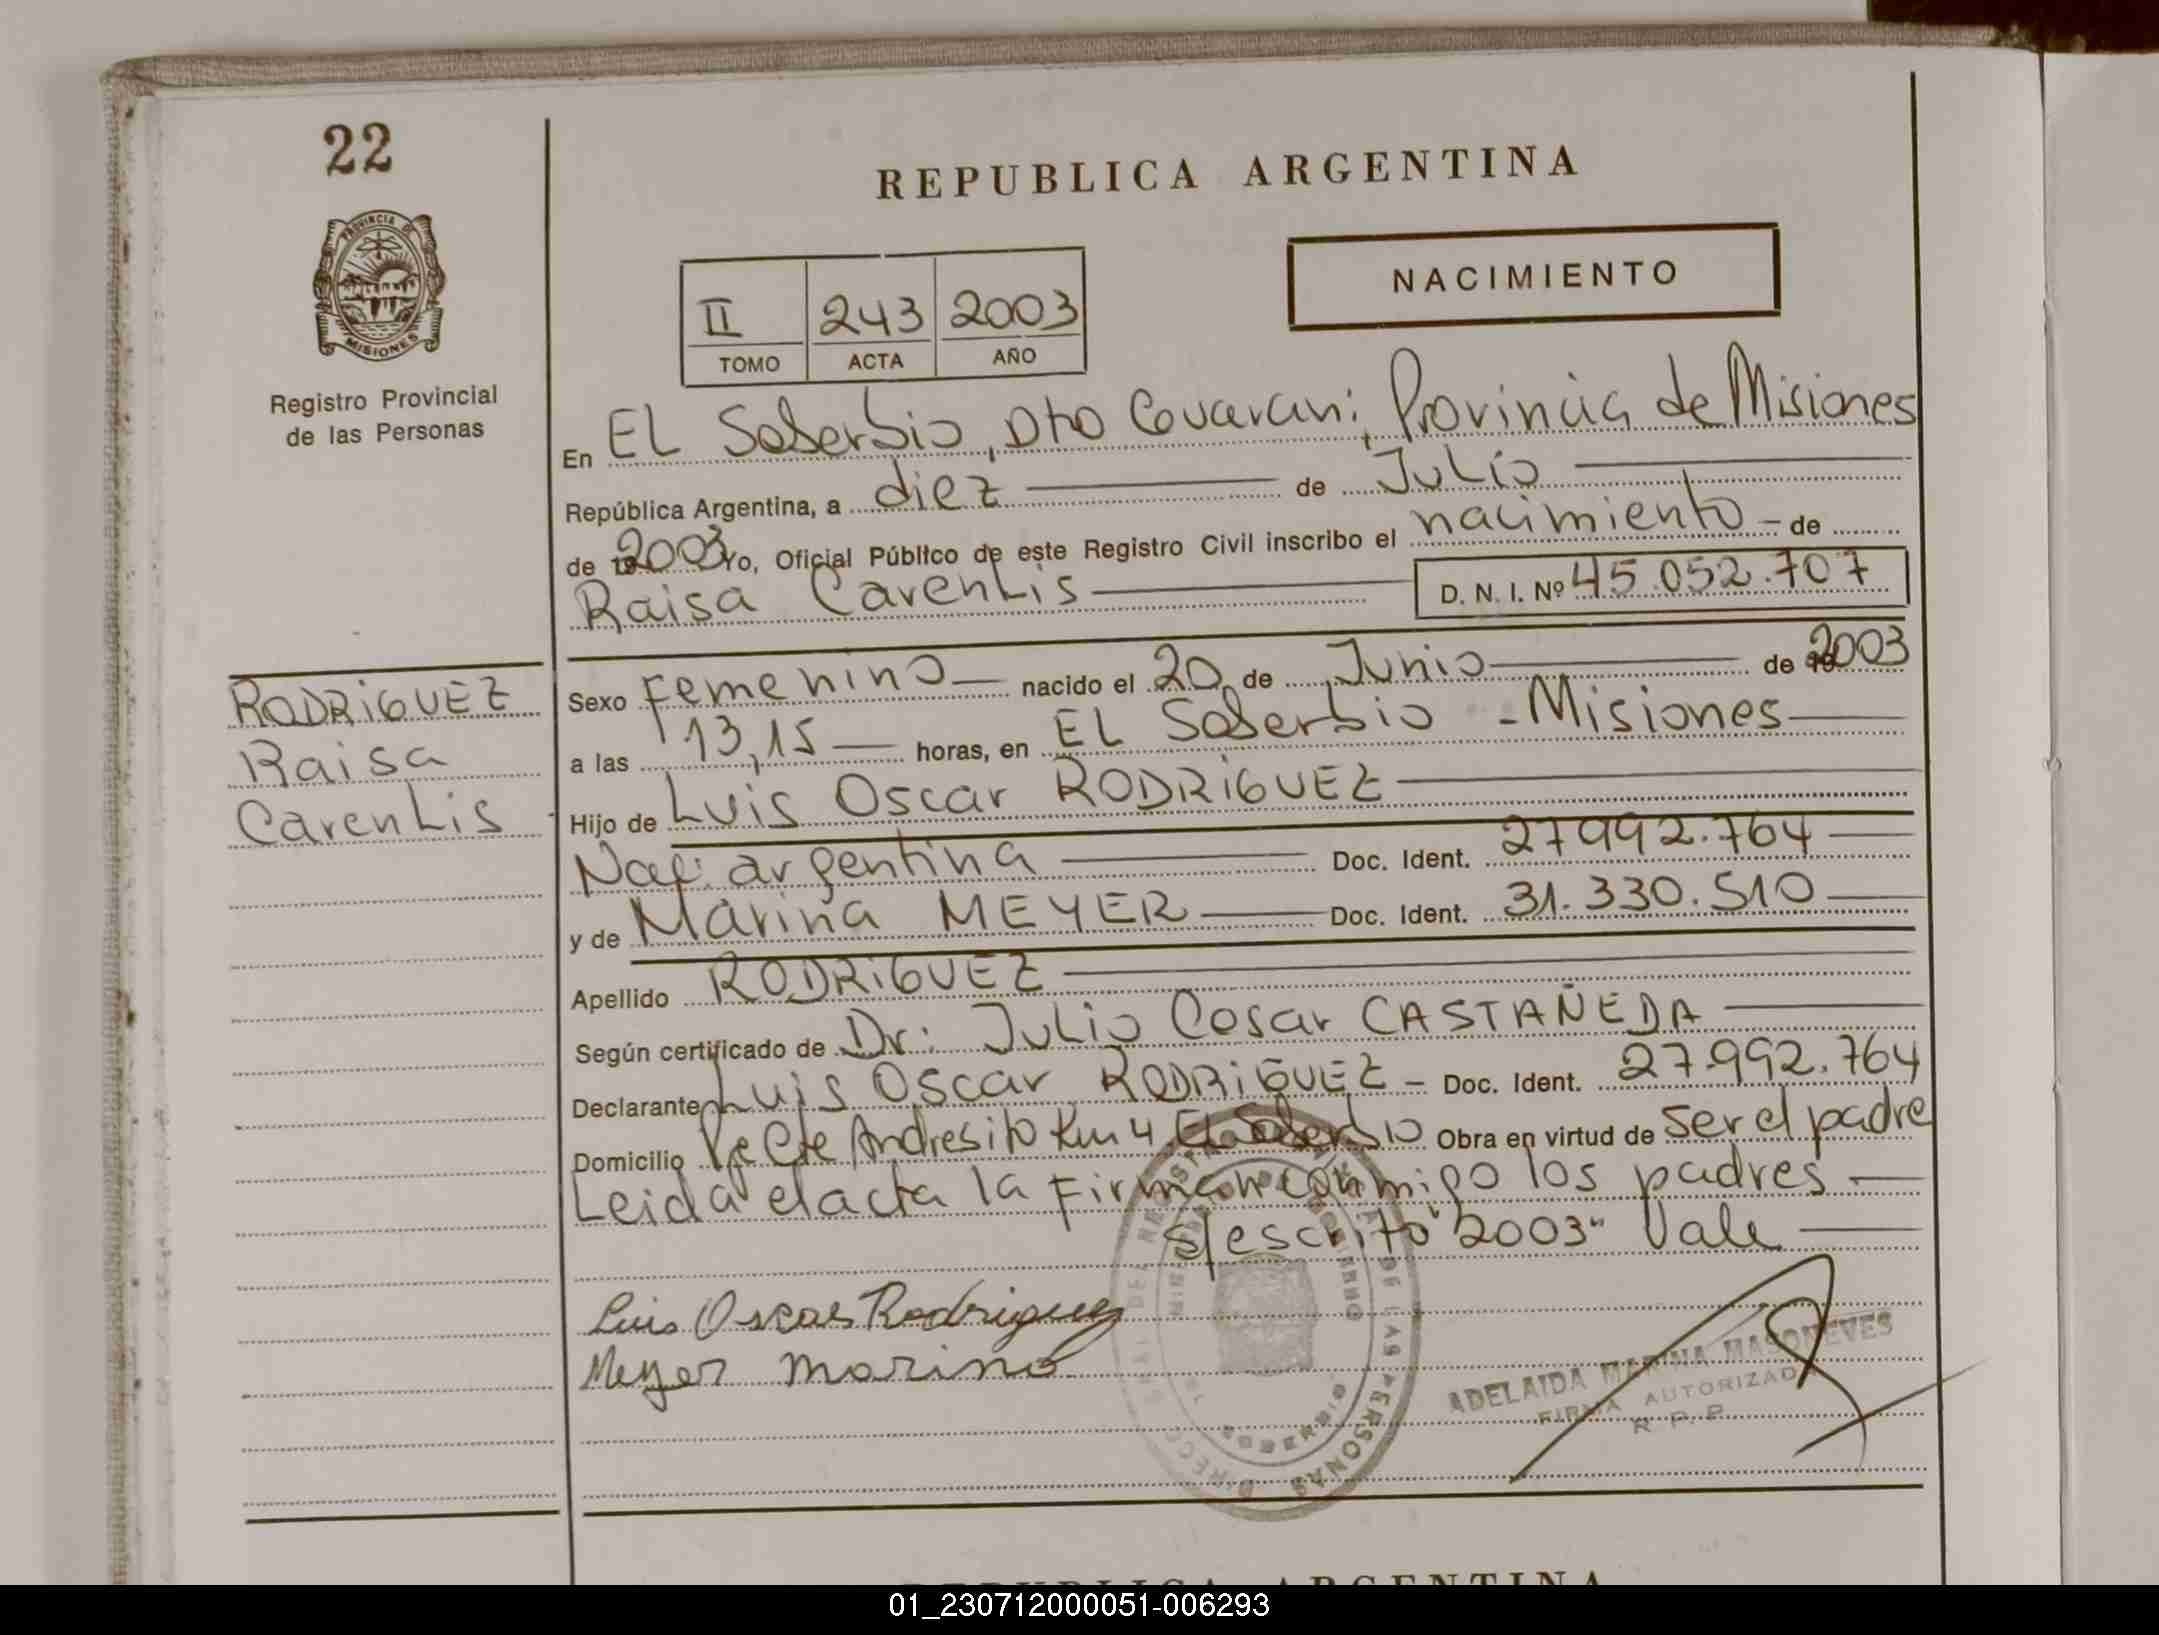 22
PROVINCIA DE
MISIONES
Registro Provincial
de las Personas
REPUBLICA ARGENTINA
NACIMIENTO
II 243 2003
TOMO ACTA AÑO
En EL Soberbio, Dto Guarani, Provincia de Misiones
República Argentina, a diez de Julio
de 2003 Yo, Oficial Público de este Registro Civil inscribo el nacimiento de
Raisa CarenLis D. N. I. Nº 45.052.707
RODRiGUEZ
Raisa
CarenLis
Sexo Femenino nacido el 20 de Junio de 2003
a las 13,15 horas, en EL Soberbio - Misiones
Hijo de Luis Oscar RODRiGUEZ
Nac: argentina Doc. Ident. 27992.764
y de Marina MEYER Doc. Ident. 31.330.510
Apellido RODRiGUEZ
Según certificado de Dr: Julio Cesar CASTAÑEDA
Declarante Luis Oscar RODRiGUEZ - Doc. Ident. 27.992.764
Domicilio Cte Andresito Km 4 El Soberbio Obra en virtud de ser el padre
Leida el acta la Firman conmigo los padres
s/escrito "2003" Vale
Luis Oscar Rodriguez
Meyer marina
ADELAIDA MARINA MASONEVES
FIRMA AUTORIZADA
R. P. P.
DE LAS PERSONAS
REPUBLICA ARGENTINA
01_230712000051-006293